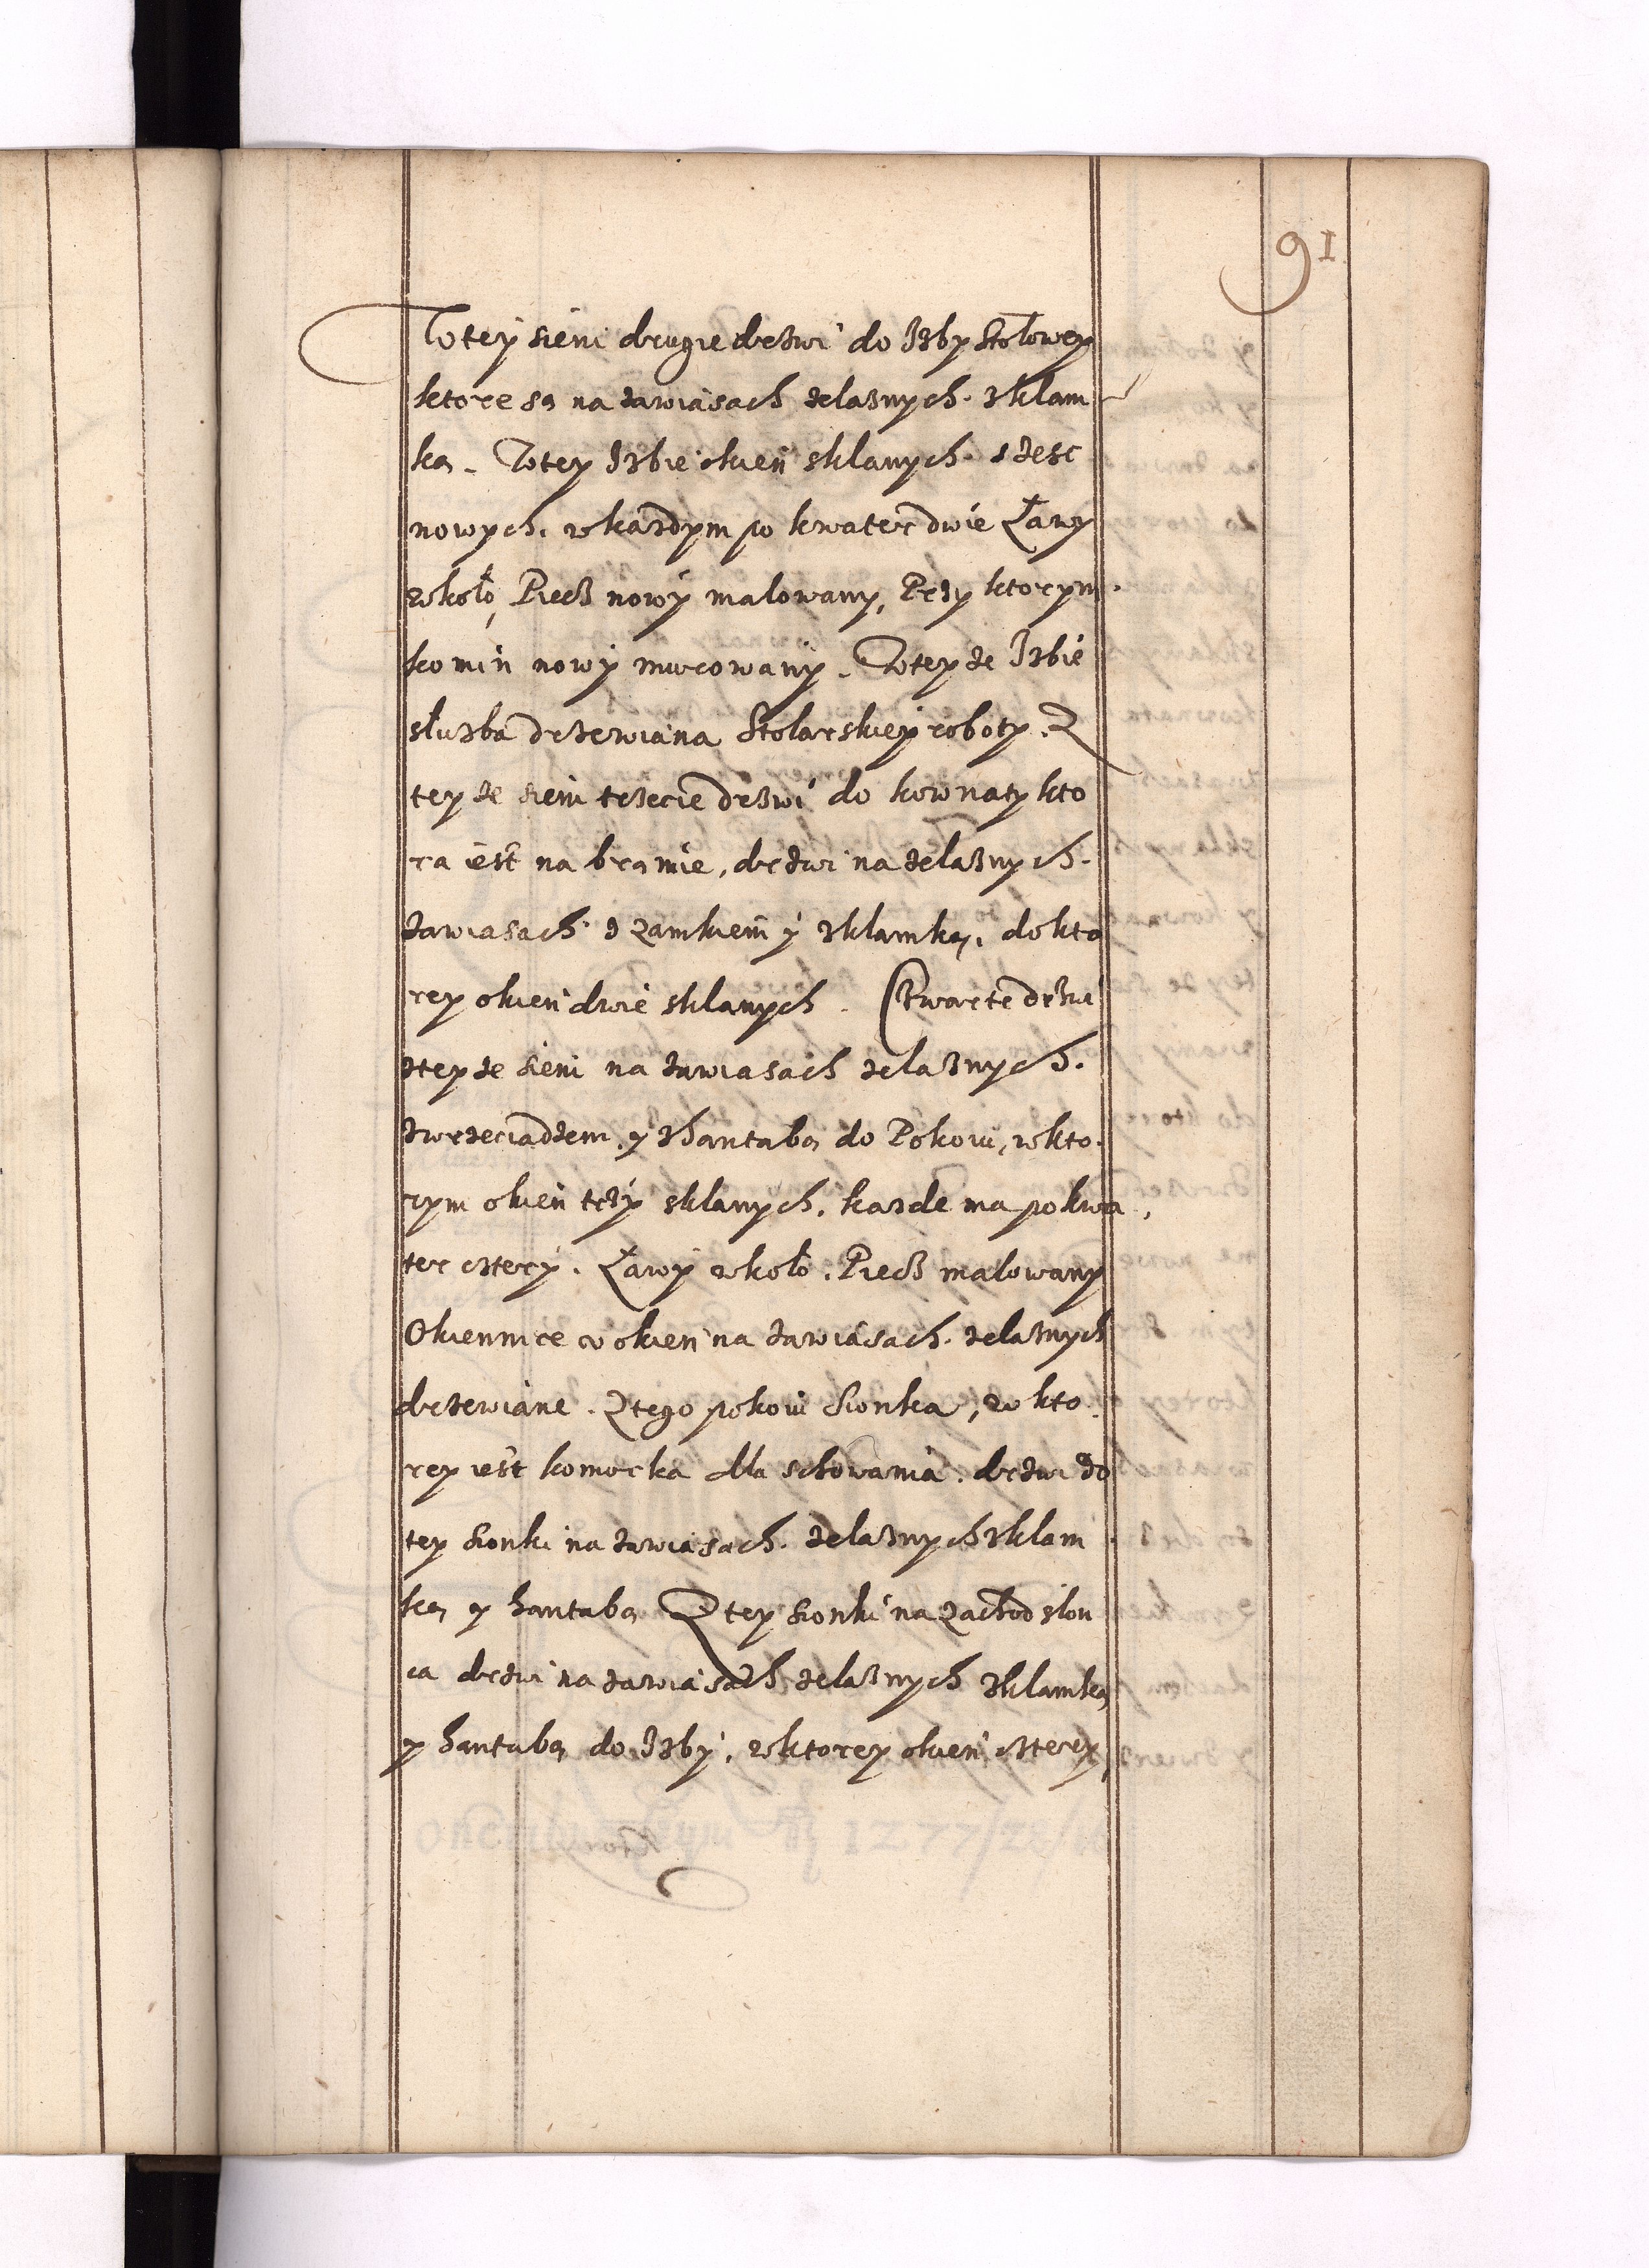 91
W tey sieni drugie drzwi do Izby Stołowey
ktore są na zawiasach zelaznych zklam
ką. W tey Izbie okien sklanych szesc
nowych, w kazdym po kwater dwie Ławy
wkoło, Piecz nowy malowany, Przy ktorym
komin nowy murowany. W tey ze Izbie
słuzba drzewiana Stolarskiey roboty. Z
tey ze sieni trzecie drzwi do kownaty kto
ra iest na bramie, drzwi na zelaznych
zawiasach z zamkiem y zklamką, do kto
rey okien dwie sklanych. Czwarte drzwi
ztey ze sieni na zawiasach zelaznych.
zwrzeciadzem y zhantabą do Pokoiu, w kto
rym okien trzy sklanych, kazde ma po kwa
ter cztery. Ławy wkoło. Piecz malowany
Okiennice v okien na zawiasach zelaznych
drzewiane. Z tego pokoiu sionka, w kto
rey iest komorka dla schowania. drzwi do
tey sionki na zawiasach zelaznych zklam
ką y hantabą Z tey sionki na zachod słon
ca drzwi na zawiasach zelaznych zklamką
y hantabą do Izby, w ktorey okien cztery